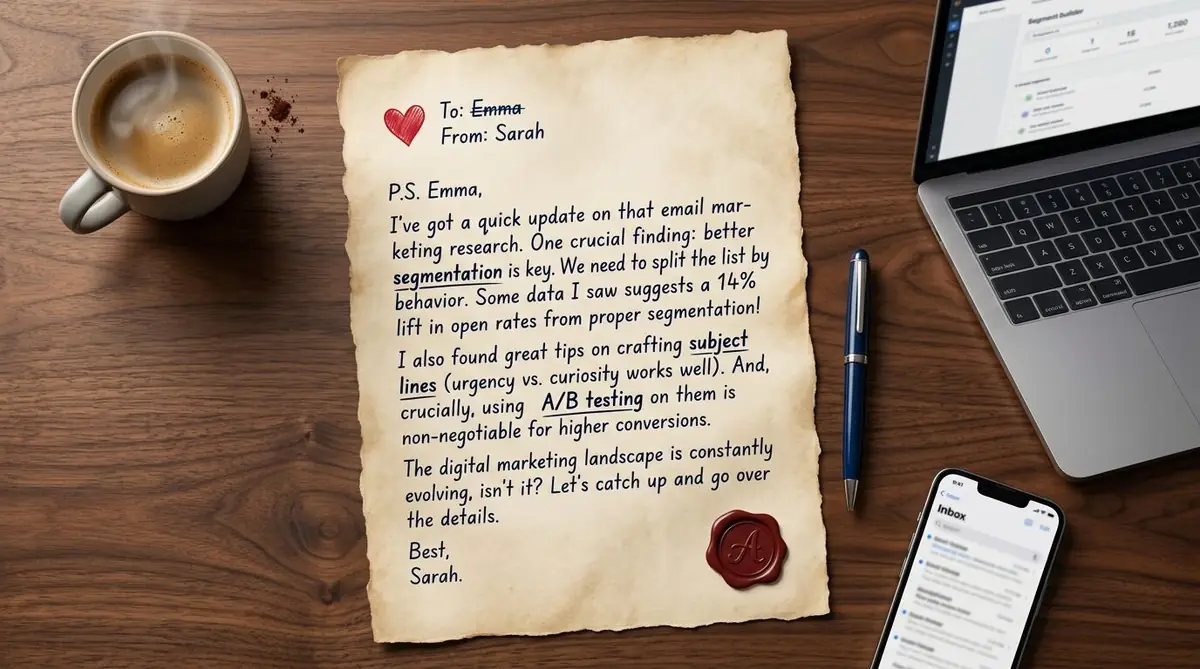 To: Emma
From: Sarah
P.S. Emma,
I've got a quick update on that email mar-
keting research. One crucial finding: better
segmentation is key. We need to split the list by
behavior. Some data I saw suggests a 14%
lift in open rates from proper segmentation!
I also found great tips on crafting subject
lines (urgency vs. curiosity works well). And,
crucially, using A/B testing on them is
non-negotiable for higher conversions.
The digital marketing landscape is constantly
evolving, isn't it? Let's catch up and go over
the details.
Best,
Sarah.
A
Segment builder
Inbox
Edit